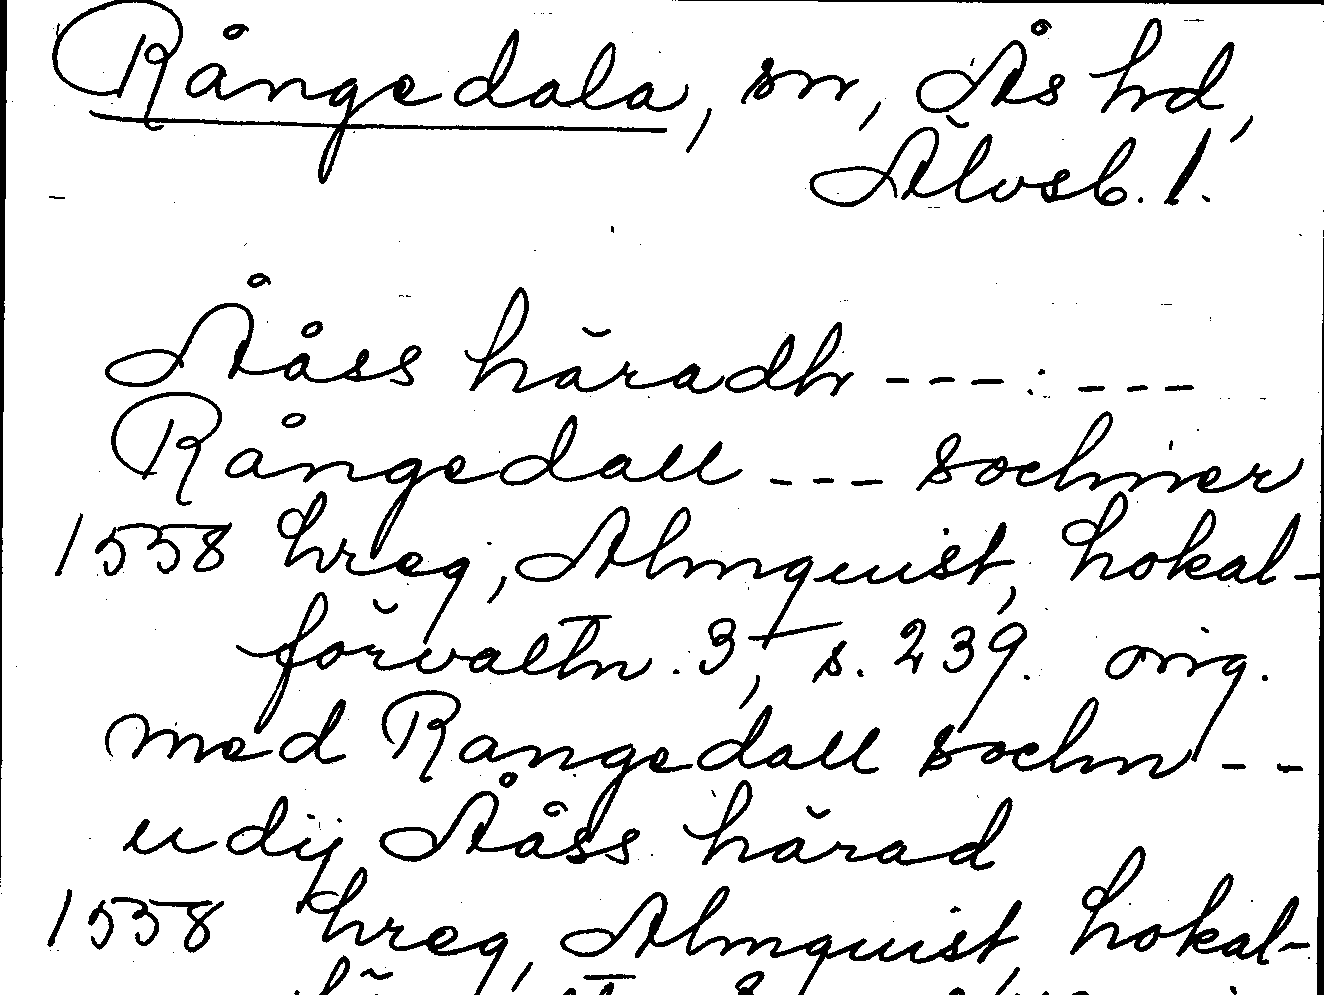 Rångedala, sn, Ås hd,
Älvsb. l.
Ååss häradh --- : ---
Rångedall --- sochner
1558 hreg, Almquist, Lokal-
förvaltn. 3, s. 239. orig.
med Rangedall sochn --
udij Ååss härad
1558 hreg, Almquist, Lokal-